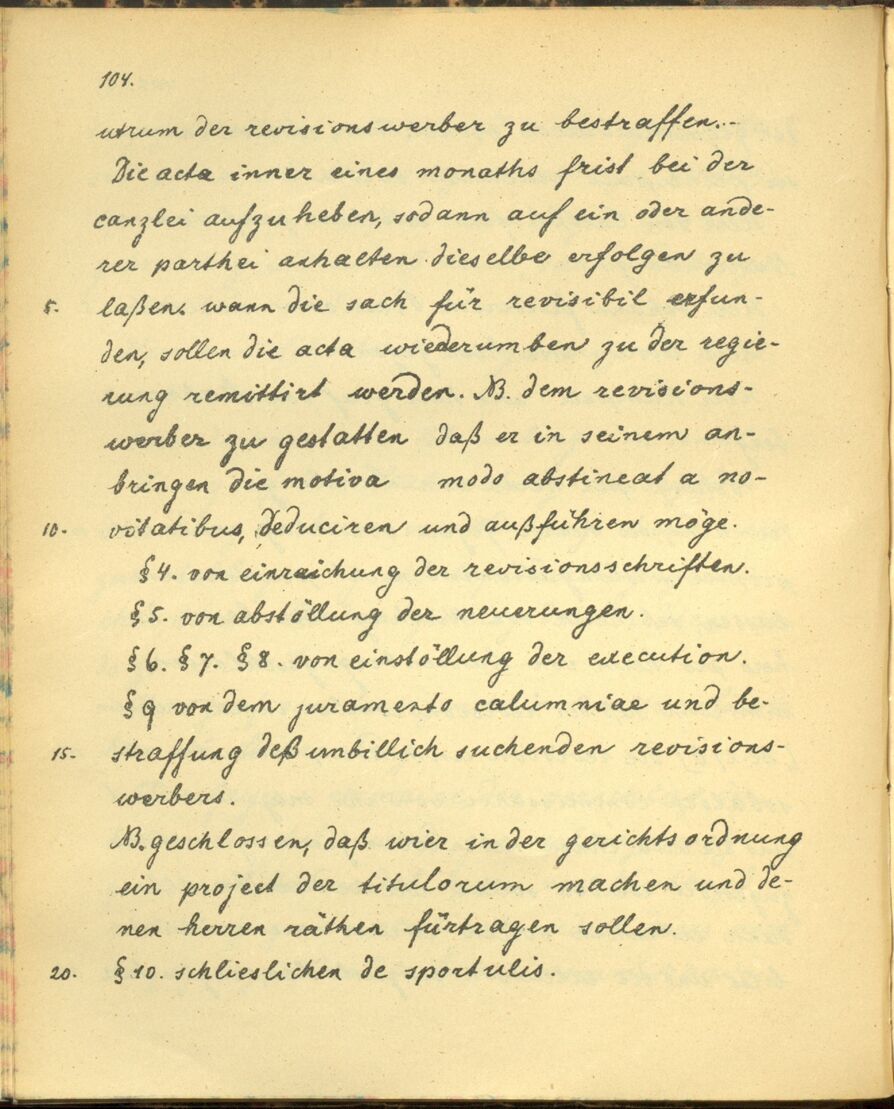 104.
utrum der revisionswerber zu bestraffen.-
Die acta inner eines monaths frist bei der
canzlei aufzuheben, sodann auf ein oder ande-
rer parthei anhalten dieselbe erfolgen zu
5. laßen. wann die sach für revisibil erfun-
den, sollen die acta wiederumben zu der regie-
rung remittirt werden. NB. dem revisions-
werber zu gestatten daß er in seinem an-
bringen die motiva modo abstineat a no-
10. vitatibus, deduciren und außführen möge.
§ 4. von einraichung der revisionsschriften.
§ 5. von abstöllung der neuerungen.
§ 6. § 7. § 8. von einstöllung der execution.
§ 9 von dem juramento calumniae und be-
15. straffung deß unbillich suchenden revisions-
werbers.
NB. geschlossen, daß wier in der gerichtsordnung
ein project der titulorum machen und de-
nen herren räthen fürtragen sollen.
20. § 10. schlieslichen de sportulis.